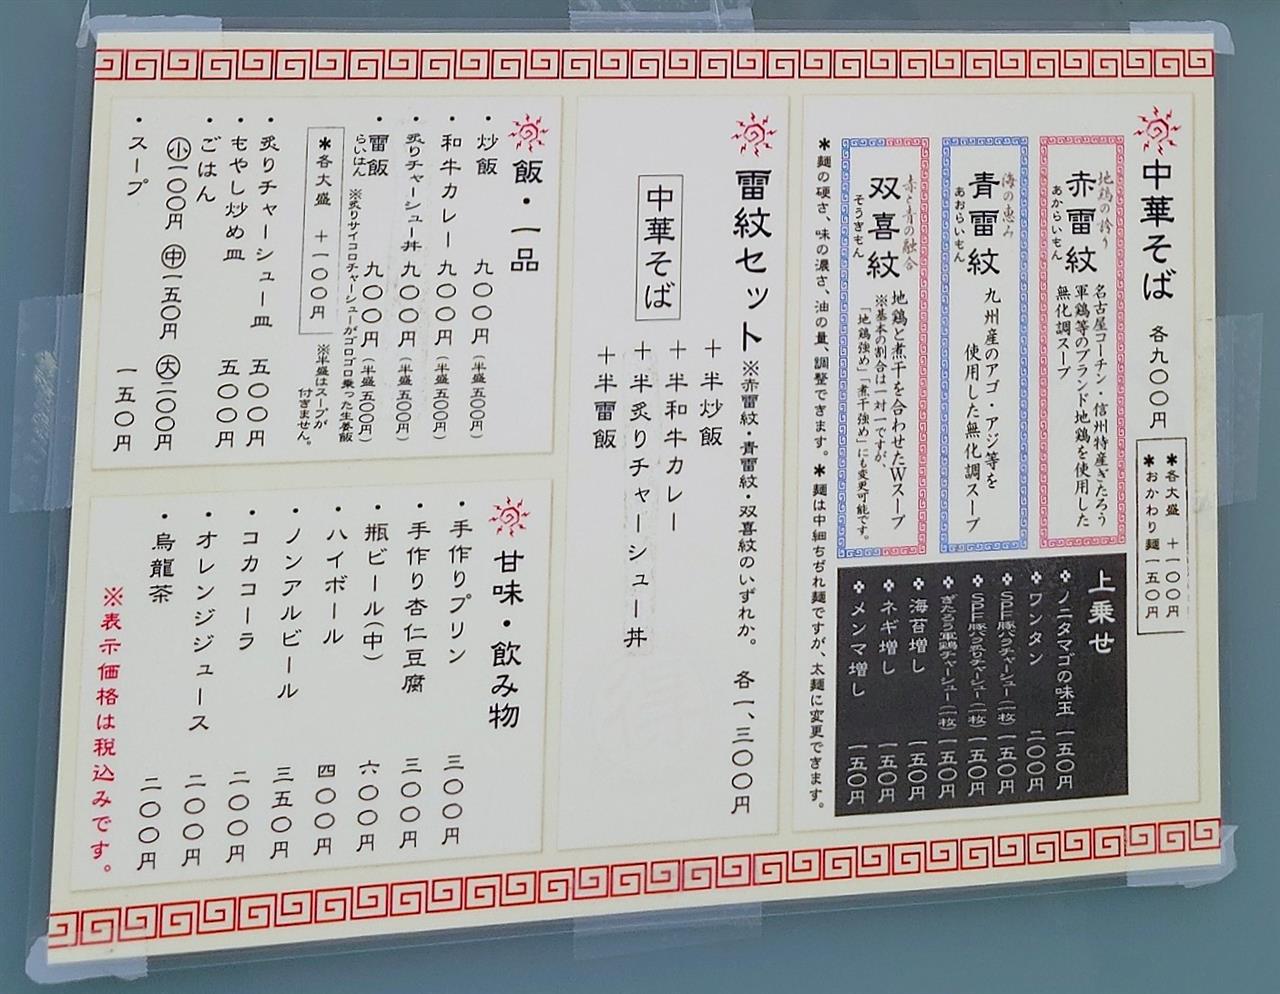 中華そば 各九〇〇円
＊各大盛 ＋一〇〇円
＊おかわり麺 一五〇円
地鶏の誇り
赤雷紋
あからいもん
名古屋コーチン・信州特産ぎたろう
軍鶏等のブランド地鶏を使用した
無化調スープ
海の恵み
青雷紋
あおらいもん
九州産のアゴ・アジ等を
使用した無化調スープ
赤と青の融合
双喜紋
そうきもん
地鶏と煮干を合わせたWスープ
※基本の割合は一対一ですが、
「地鶏強め」「煮干強め」にも変更可能です。
上乗せ
ノニタマゴの味玉 一五〇円
ワンタン 二〇〇円
SPF豚バラチャーシュー(一枚) 一五〇円
SPF豚バラ炙りチャーシュー(一枚) 一五〇円
ぎたろう軍鶏チャーシュー(一枚) 一五〇円
海苔増し 一五〇円
ネギ増し 一五〇円
メンマ増し 一五〇円
＊麺の硬さ、味の濃さ、油の量、調整できます。 ＊麺は中細ちぢれ麺ですが、太麺に変更できます。
雷紋セット ※赤雷紋・青雷紋・双喜紋のいずれか。 各一、三〇〇円
中華そば
＋半炒飯
＋半和牛カレー
＋半炙りチャーシュー丼
＋半雷飯
飯・一品
・炒飯 九〇〇円(半盛五〇〇円)
・和牛カレー 九〇〇円(半盛五〇〇円)
・炙りチャーシュー丼 九〇〇円(半盛五〇〇円)
・雷飯 九〇〇円(半盛五〇〇円)
らいはん ※炙りサイコロチャーシューがゴロゴロ乗った生姜飯
＊各大盛 ＋一〇〇円
※半盛はスープが
付きません。
・炙りチャーシュー皿 五〇〇円
・もやし炒め皿 五〇〇円
・ごはん
小一〇〇円 中一五〇円 大二〇〇円
・スープ 一五〇円
甘味・飲み物
・手作りプリン 三〇〇円
・手作り杏仁豆腐 三〇〇円
・瓶ビール(中) 六〇〇円
・ハイボール 四〇〇円
・ノンアルビール 三五〇円
・コカコーラ 二〇〇円
・オレンジジュース 二〇〇円
・烏龍茶 二〇〇円
※表示価格は税込みです。